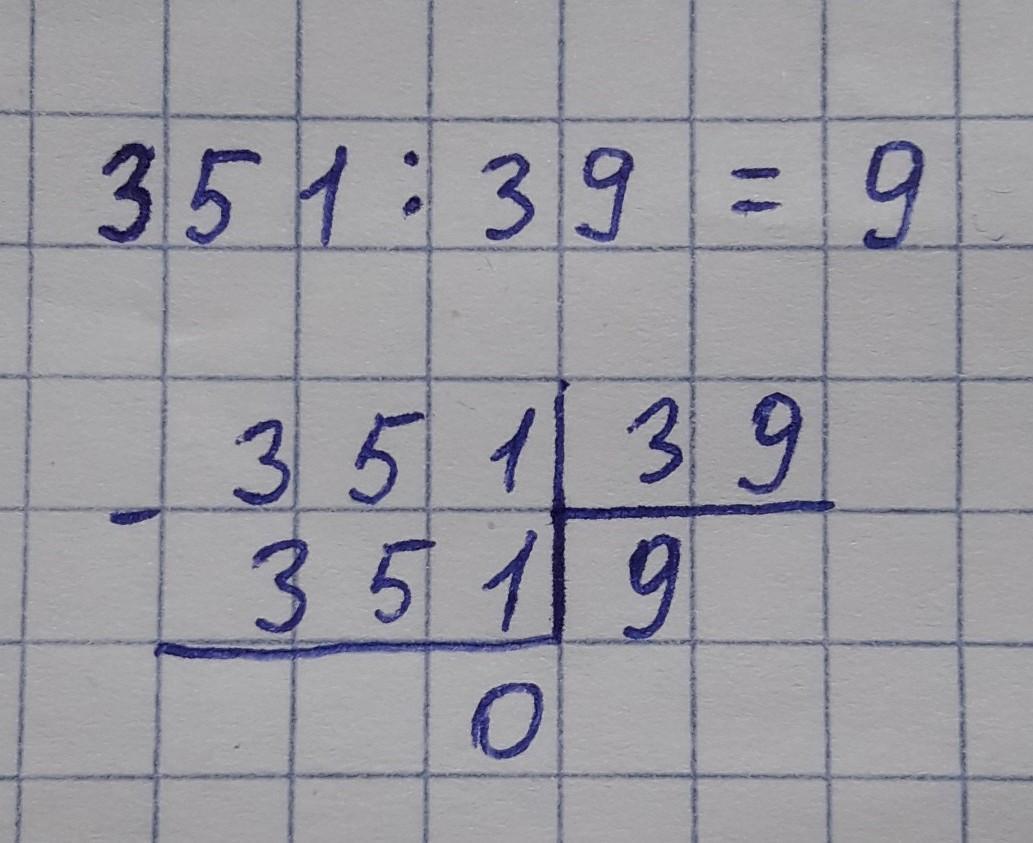 351:39 = 9
351 39
- 351 9
0